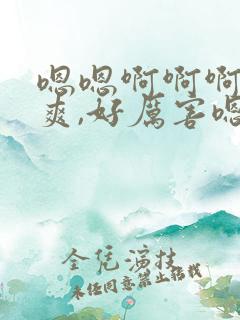 嗯嗯啊啊啊
爽,好厉害嗯
全凭演技
未经同意禁止转载